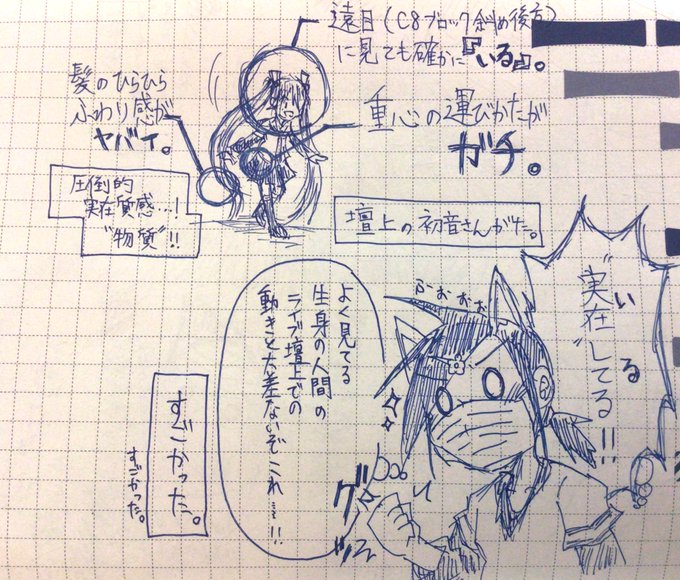 遠目(C8ブロック斜め後方)
に見ても確かに『いる』。
髪のひらひら
ふわり感が
ヤバイ。
重心の運びかたが
ガチ。
圧倒的
実在質感…!
"物質"!!
壇上の初音さんがた。
"実在"してる!!
いる
ふぉぉぉぉ
よく見てる
生身の人間の
ライブ壇上での
動きと大差ないぞこれ…!!
グッ
すごかった。
すごかった。